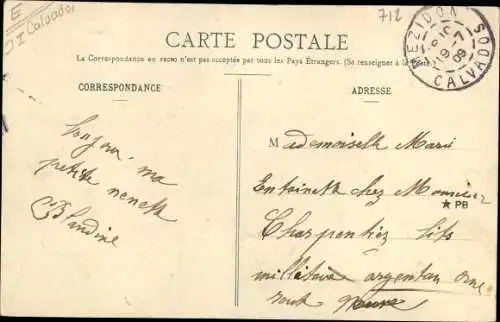 E
DI Calvados
712
MEZIDON
19-7
09
CALVADOS
CARTE POSTALE
La Correspondance au recto n'est pas acceptée par tous les Pays Étrangers. (Se renseigner à la Poste)
CORRESPONDANCE
ADRESSE
Bonjour ma
petite nenette
Blandine
Mademoiselle Marie
Entoinette chez Monsieur
★ PB
Charpentiez lits
militaire argentan Orne